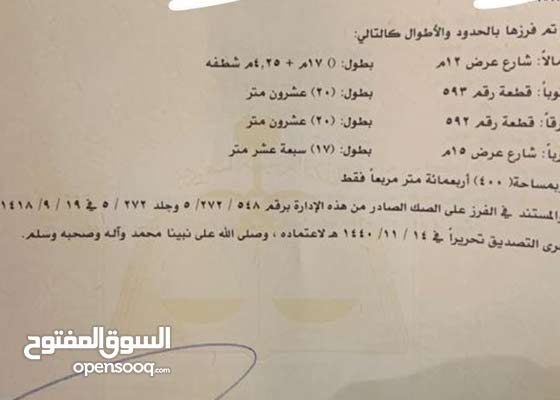 تم فرزها بالحدود والأطوال كالتالي:
مالاً: شارع عرض ١٢م بطول: () ١٧م + ٤,٢٥م شطفه
وباً: قطعة رقم ٥٩٣ بطول: (٢٠) عشرون متر
رقاً: قطعة رقم ٥٩٢ بطول: (٢٠) عشرون متر
رباً: شارع عرض ١٥م بطول: (١٧) سبعة عشر متر
بمساحة( ٤٠٠) أربعمائة متر مربعاً فقط
والمستند في الفرز على الصك الصادر من هذه الإدارة برقم ٥٤٨ / ٥/٢٧٢ وجلد ٢٧٢ / ٥ في ١٩ / ٩/ ١٤١٨
جرى التصديق تحريراً في ١٤ / ١١/ ١٤٤٠ هـ لاعتماده ، وصلى الله على نبينا محمد وآله وصحبه وسلم.
السوق المفتوح
opensooq.com